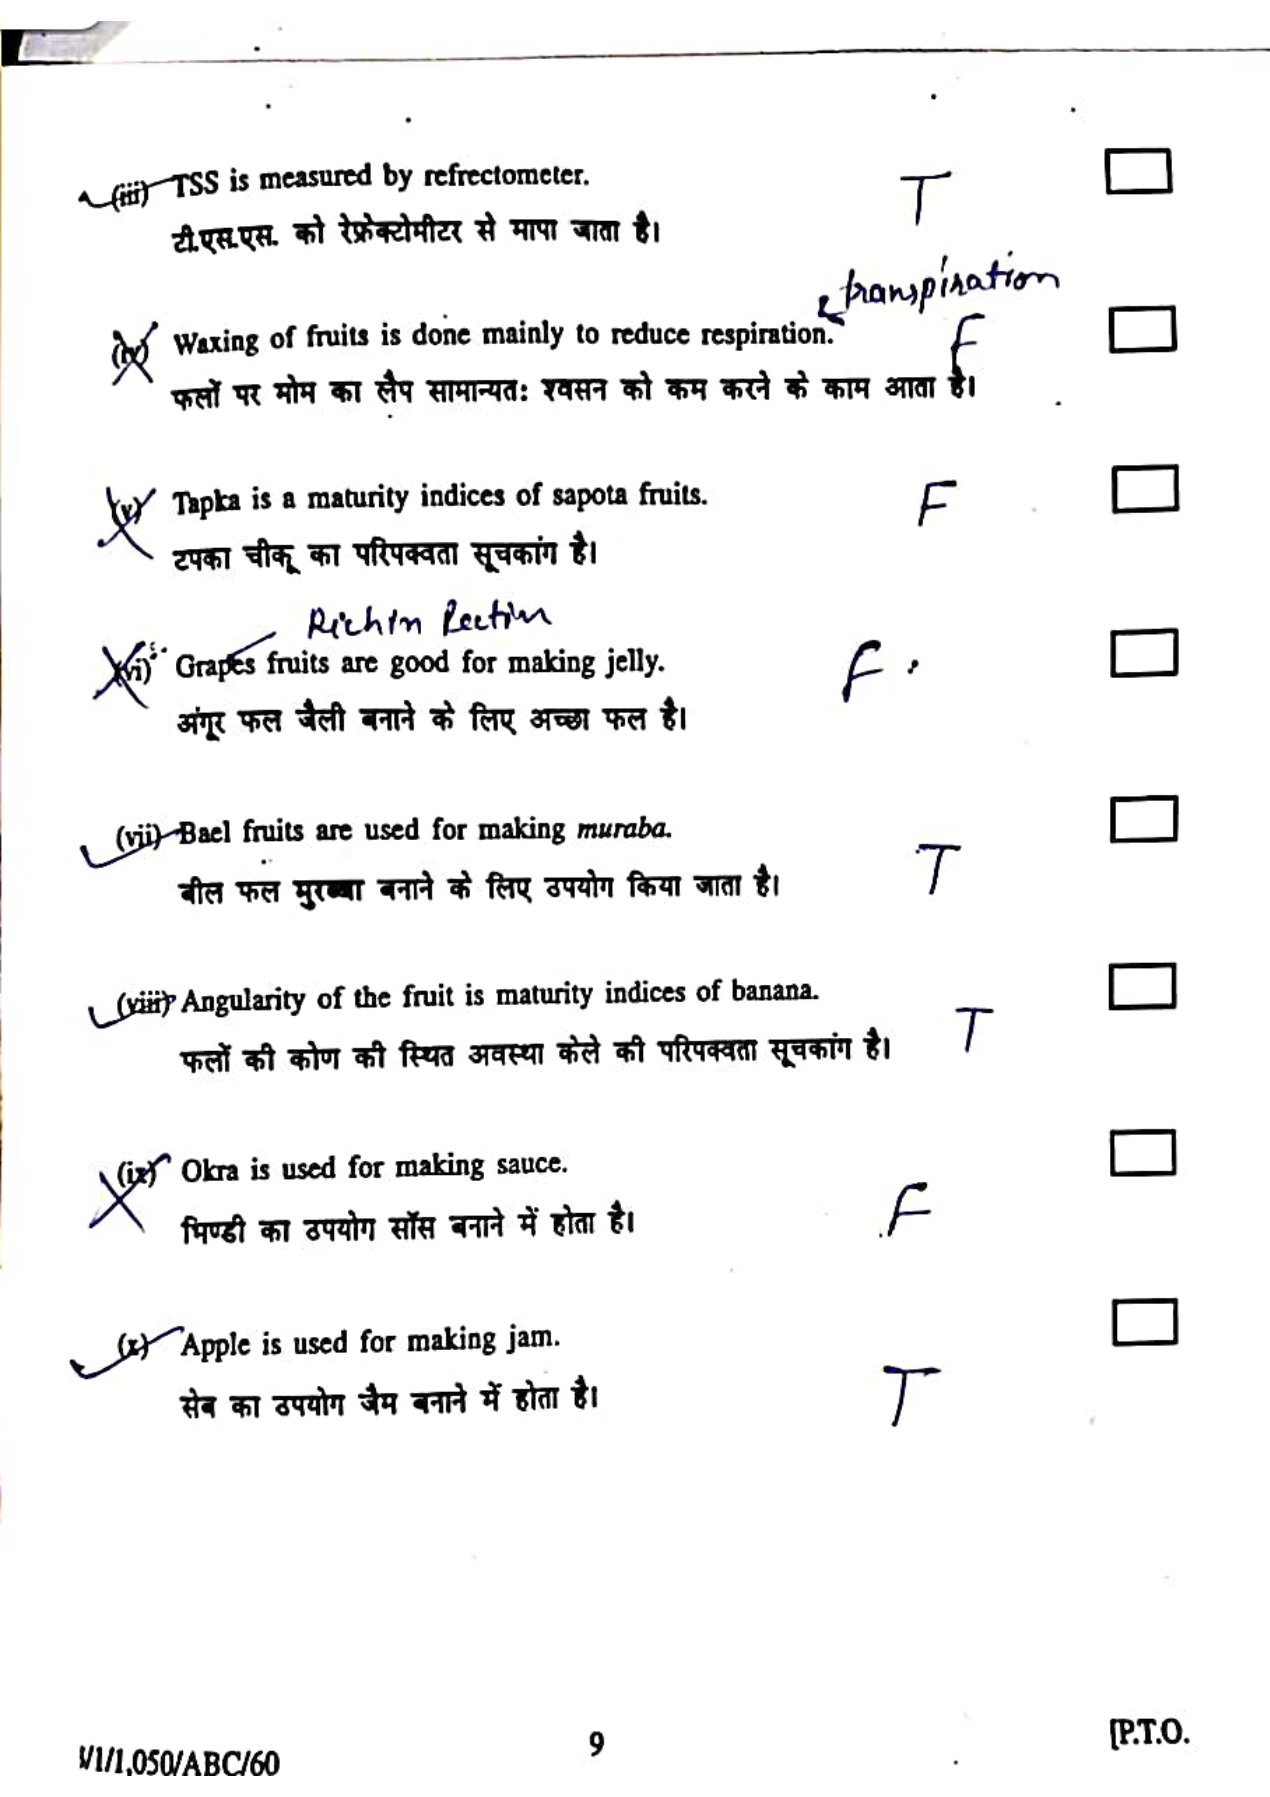 (iii) TSS is measured by refrectometer.
T
टी.एस.एस. को रेफ्रेक्टोमीटर से मापा जाता है।
transpiration
(iv) Waxing of fruits is done mainly to reduce respiration.
F
फलों पर मोम का लैप सामान्यतः श्वसन को कम करने के काम आता है।
(v) Tapka is a maturity indices of sapota fruits.
F
टपका चीकू का परिपक्वता सूचकांग है।
Rich in Pectin
(vi) Grapes fruits are good for making jelly.
F
अंगूर फल जैली बनाने के लिए अच्छा फल है।
(vii) Bael fruits are used for making muraba.
T
बील फल मुरब्बा बनाने के लिए उपयोग किया जाता है।
(viii) Angularity of the fruit is maturity indices of banana.
T
फलों की कोण की स्थित अवस्था केले की परिपक्वता सूचकांग है।
(ix) Okra is used for making sauce.
F
भिण्डी का उपयोग सॉस बनाने में होता है।
(x) Apple is used for making jam.
T
सेब का उपयोग जैम बनाने में होता है।
/1/1,050/ABC/60
9
[P.T.O.